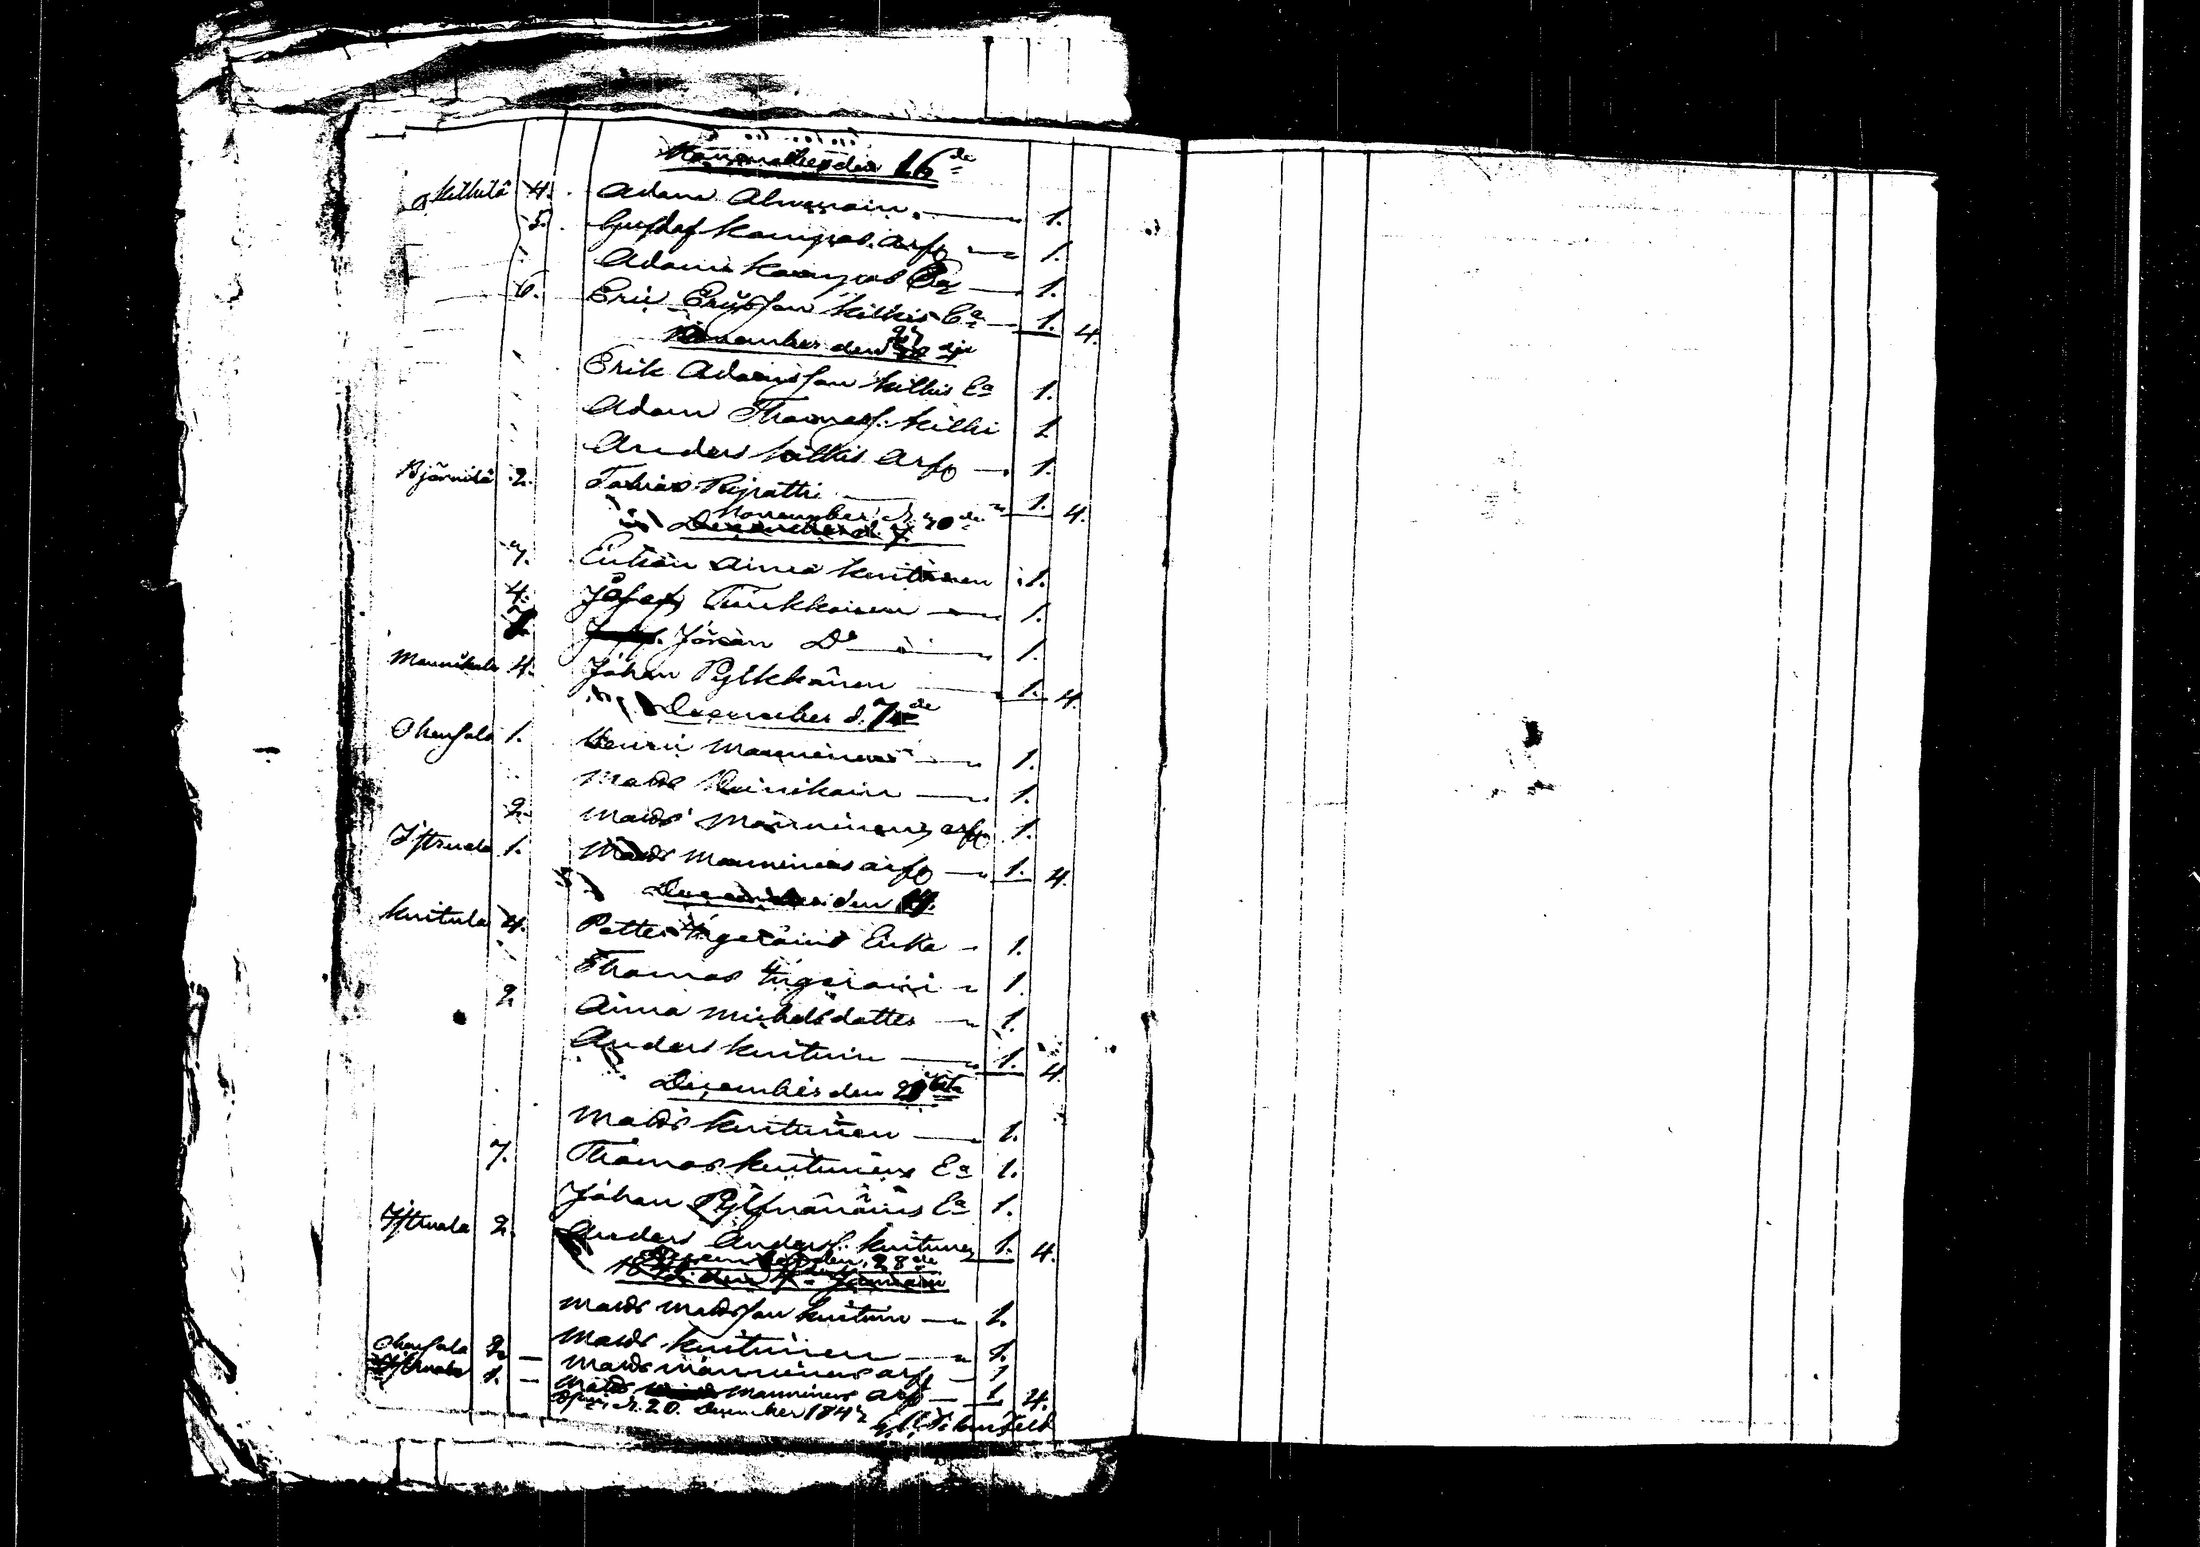 November den 16de
Kilkilä 4. Adam Ahvenain 1.
5. Gustaf Kamppas arfv 1.
Adam Kamppas Ea 1.
6. Eric Ericsson Kilkis Ea 1. 4.
November den
Erik Adamsson Kilkis Ea 1.
Adam Thomass. Kilki 1
Anders Kilkis arfv 1.
Björnilä 2. Tobias Ripatti 1. 4.
November d. 30de
December d. 7
7. Enkan Anna Kuitunen 1.
4. Josef Turkkainen 1.
7. Jöran Do 1.
Mannikala 4. Johan Pylkkänen 1. 4.
December d. 7de
Ohensalo 1. Henric Manninen 1.
Mats Reinikain 1.
2. Mats Manninens arfv. 1.
Istruala 1. Mats Manninens arfv 1. 4.
December den 14.
Kuitula 4. Petter Ingeroins Enka 1.
Thomas Ingeroin 1.
2 Anna Michelsdotter 1.
Anders Kuituin 1. 4.
December den 21sta
Mats Kuitunen 1.
7. Thomas Kuitunens Ea 1.
Johan Ea 1.
Istruala 2. Anders Anderss. Kuitunen 1. 4.
December den 28de
den 4de Januari
Mats Matsson Kuitun 1.
Mats Kuitunen 1.
Ohensalo 2. Mats Manninens arfv 1
Istruala 1. Mats Manninens arfv 1 4.
d. 20. December 1847